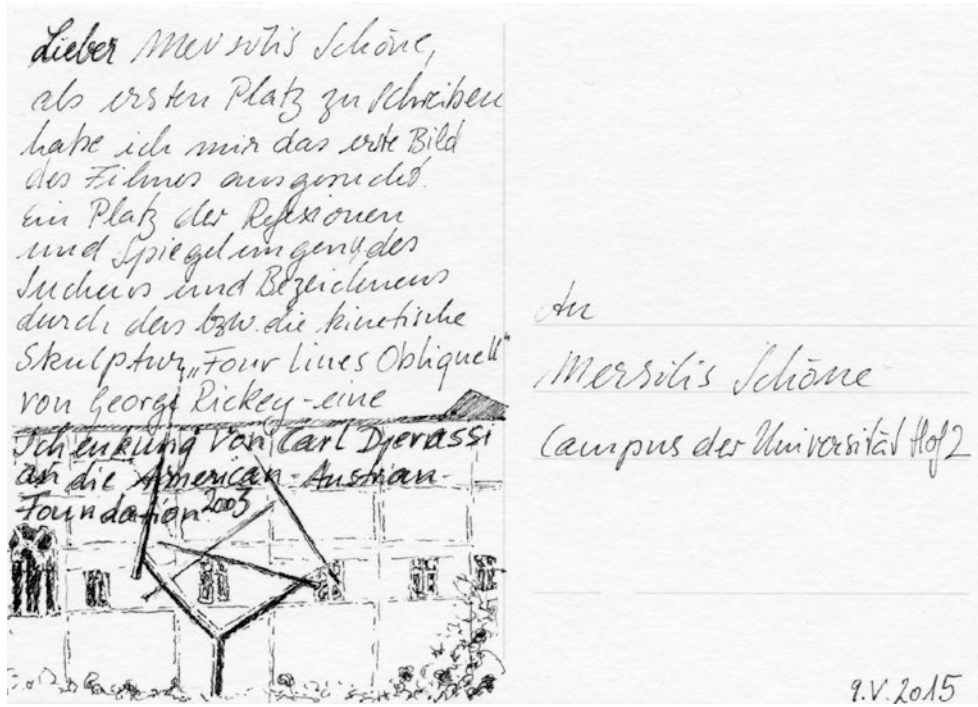 Lieber Mersolis Schöne,
als ersten Platz zu schreiben
habe ich mir das erste Bild
des Filmes ausgesucht.
Ein Platz der Reflexionen
und Spiegelungen, des
Suchens und Bezeichnens
durch den bzw. die kinetische
Skulptur „Four Lines Oblique II“
von George Rickey - eine
Schenkung von Carl Djerassi
an die American-Austrian-
Foundation 2003
An
Mersolis Schöne
Campus der Universität Hof 2
9.V.2015